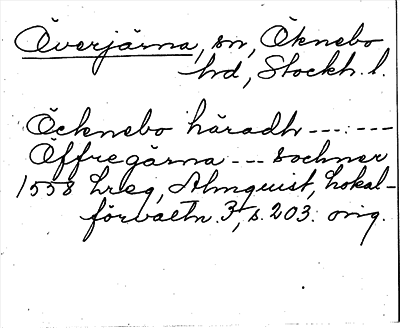 Överjärna, sn, Öknebo
hd, Stockh. l.
Öcknebo häradh --- . ---
Öffregärna --- sochner
1558 Lreg, Almquist, Lokal-
förvaltn. 3, s. 203. orig.